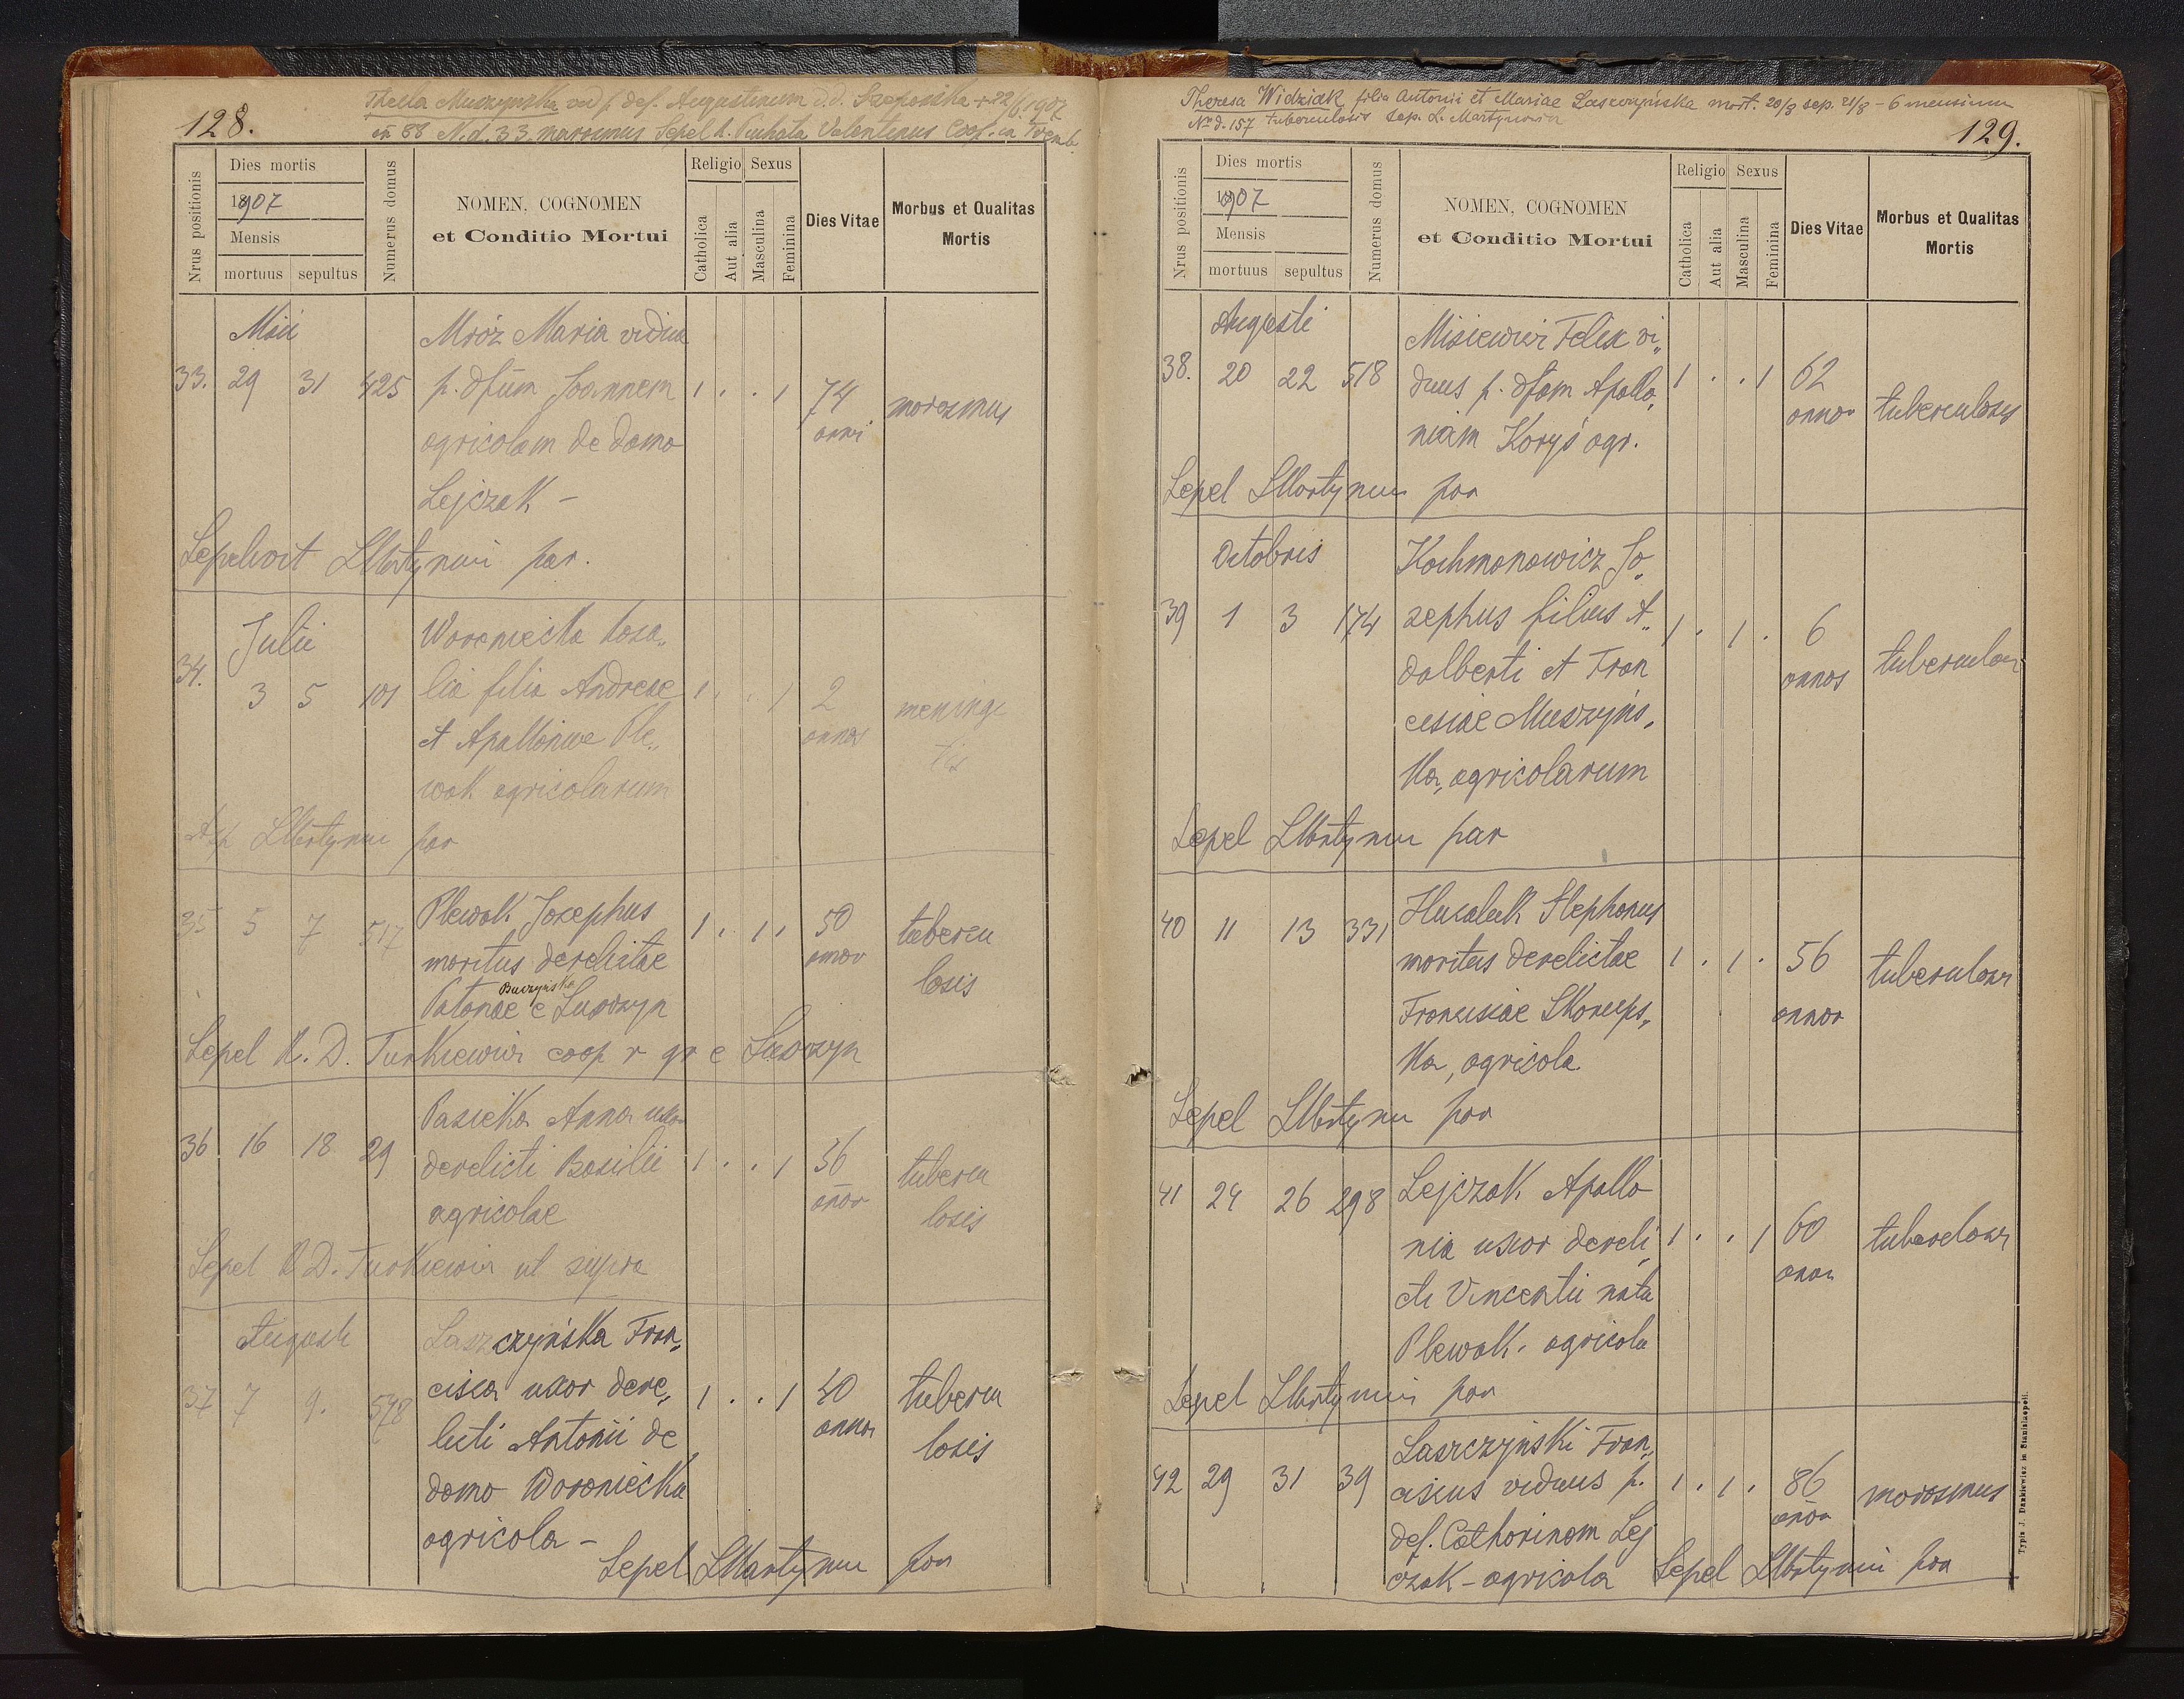 128.
Thecla Muszyńska vid. p. def. Augustinum d.d. + 22/6 1907
88 N. d. 33. marasmus Sepel. Valentinus Coop. in
Nrus positionis
Dies mortis
1907
Mensis
mortuus sepultus
Numerus domus
NOMEN, COGNOMEN
et Conditio Mortui
Religio
Catholica
Aut alia
Sexus
Masculina
Feminina
Dies Vitae
Morbus et Qualitas
Mortis
Maii
Mróz Maria vidua
33. 29 31 425 p. dfum Joannem 1 . . 1 74 marasmus
agricolam de domo anni
Lejczak –
Sepelivit LMartyniui par.
Julii
Woroniecka Rosa„
34. 3 5 101 lia filia Andreae 1 . . 1 2 meningi
et Apolloniae Ple„ annos tis
wak agricolarum
LMartyniui par
Plewak Josephus
35 5 7 517 maritus derelictae 1 . 1 . 50 tubercu
annor losis
Buczyńska
e Suszczyn
Sepel R. D. Turkiewicz coop r gr e Suszczyn
Pasieka Anna uxor
36 16 18 29 derelicti Basilii 1 . . 1 36 tubercu
agricolae annor losis
Sepel R D. Turkiewicz ut supra
Augusti
Laszczyńska Fran„
37 7 9. 598 cisca uxor dere„ 1 . . 1 40 tubercu
licti Antonii de annor losis
domo Woroniecka
agricola –
Sepel LMartyniu par
Theresa Widziak filia Antonii et Mariae Laszczyńska mort. 20/8 sep. 21/8 – 6 mensium
No d. 157 tuberculosis sep. L. Martyniu
129.
Nrus positionis
Dies mortis
1907
Mensis
mortuus sepultus
Numerus domus
NOMEN, COGNOMEN
et Conditio Mortui
Religio
Catholica
Aut alia
Sexus
Masculina
Feminina
Dies Vitae
Morbus et Qualitas
Mortis
Augusti
Misiewicz Felix vi„
38. 20 22 518 duus p. dfam Apollo„ 1 . . 1 62 tuberculosis
niam Koryś agr. annor
Sepel LMartyniu par
Octobris
Kochmanowicz Jo„
39 1 3 174 sephus filius A„ 1 . 1 . 6 tuberculosis
dalberti et Fran annos
cisiae Muszyńs„
ka, agricolarum
Sepel LMartyniu par
Huculak Stephanus
40 11 13 331 maritus derelictae 1 . 1 . 56 tuberculosis
Franciscae Skorups„ annor
ka, agricola
Sepel LMartyniu par
41 24 26 298 Lejczak Apollo
nia uxor dereli„ 1 . . 1 60 tuberculosis
cti Vincentii nata annor
Plewak. agricola
Sepel LMartyniui par
Laszczyński Fran„
42 29 31 39 ciscus viduus p. 1 . 1 . 86 marasmus
def. Catharinam Lej annor
czak – agricola Sepel LMartyniui par
Typis J. Dankiewicz in Stanislaopoli.